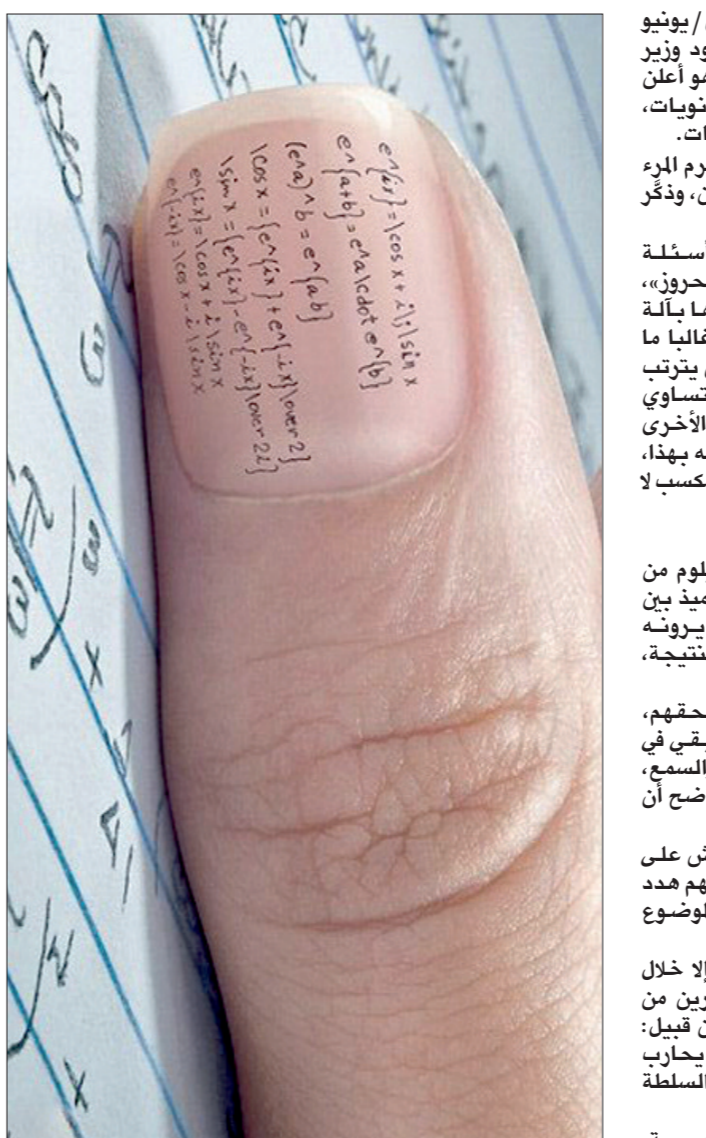 e^{ix}=\cos x+i\;\sin x
e^{a+b}=e^a\cdot e^{b}
(e^a)^b=e^{ab}
\cos x={e^{ix}+e^{-ix}\over 2}
\sin x={e^{ix}-e^{-ix}\over 2i}
e^{ix}=\cos x+i\sin x
e^{-ix}=\cos x-i\sin x
/يونيو
ود وزير
مو أعلن
نويات،
ات.
رم المرء
ن، وذكّر
أسئلة
حروز»،
ما بآلة
غالبا ما
يترتب
تساوي
الأخرى
ه بهذا،
كسب لا
لوم من
ميذ بين
يرونه
نتيجة،
حقهم،
يقي في
والسمع،
ضح أن
ش على
هم هدد
لوضوع
إلا خلال
رين من
ن قبيل:
يحارب
السلطة